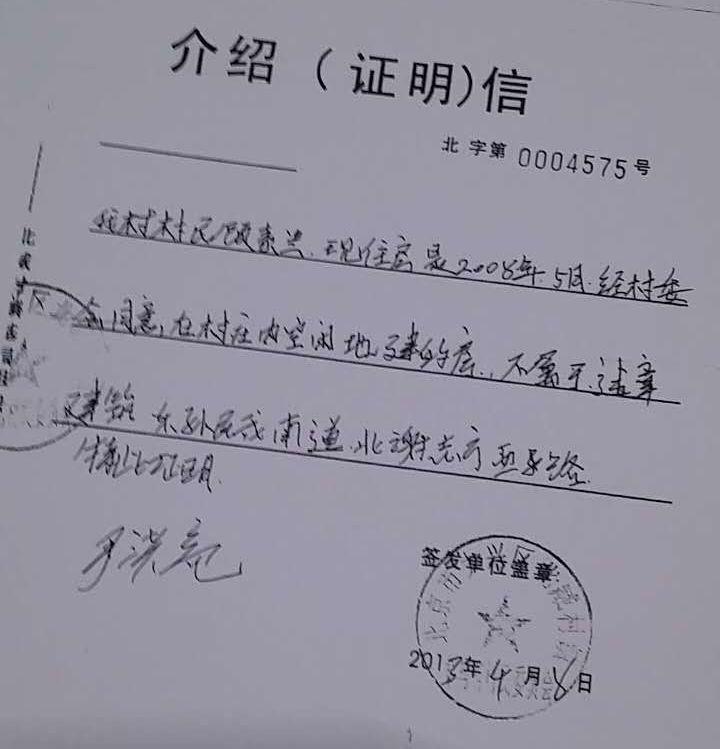 介绍（证明）信
北 字第 0004575号
我村村民顾素兰.现住房是2008年.5月.经村委
会同意,在村庄内空闲地 建的房.不属于违章
建筑 东孙 南道.北谢志 西 路.
特此证明.
签发单位盖章
北京市
2013年4月8日